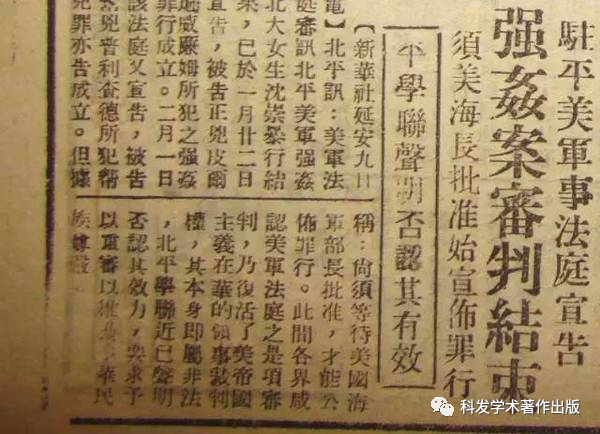 駐平美軍事法庭宣告
强姦案審判結束
須美海長批准始宣佈罪行
平學聯聲明否認其有效
【新華社延安九日
電】北平訊：美軍法
庭審訊北平美軍强姦
北大女生沈崇暴行結
案，已於一月廿二日
宣告，被告正兇皮爾
威廉姆所犯之强姦
罪行成立。二月一日
該法庭又宣告，被告
兇普利查德所犯幫
犯罪亦告成立。但據
稱：尚須等待美國海
軍部長批准，才能公
佈罪行。此間各界咸
認美軍法庭之是項審
判，乃復活了美帝國
主義在華的領事裁判
權，其本身即屬非法
，北平學聯近已聲明
否認其效力，要求予
以重審以維 華民
族尊嚴
科发学术著作出版